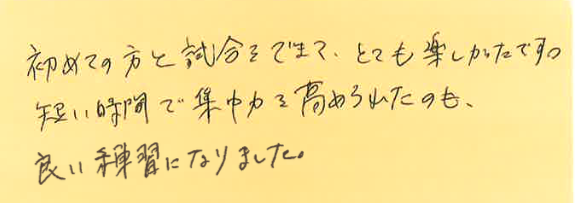 初めての方と試合をできて、とても楽しかったです。
短い時間で集中力を高められたのも、
良い練習になりました。